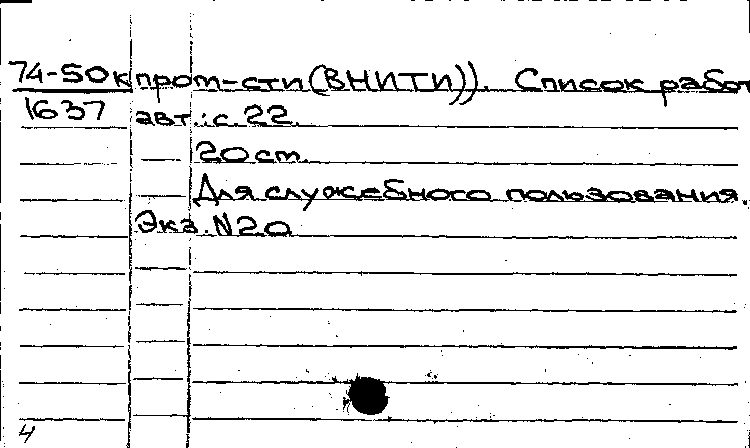 74-50к пром-сти (ВНИТИ)). Список работ
1637 авт.: с. 22.
20 cm.
Для служебного пользования.
Экз. N20
4